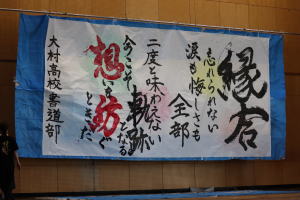 縁合
忘れられない
涙も悔しさも
全部
二度と味わえない
今こそ軌跡となる
想いを紡ぐ
ときだ
大村高校書道部